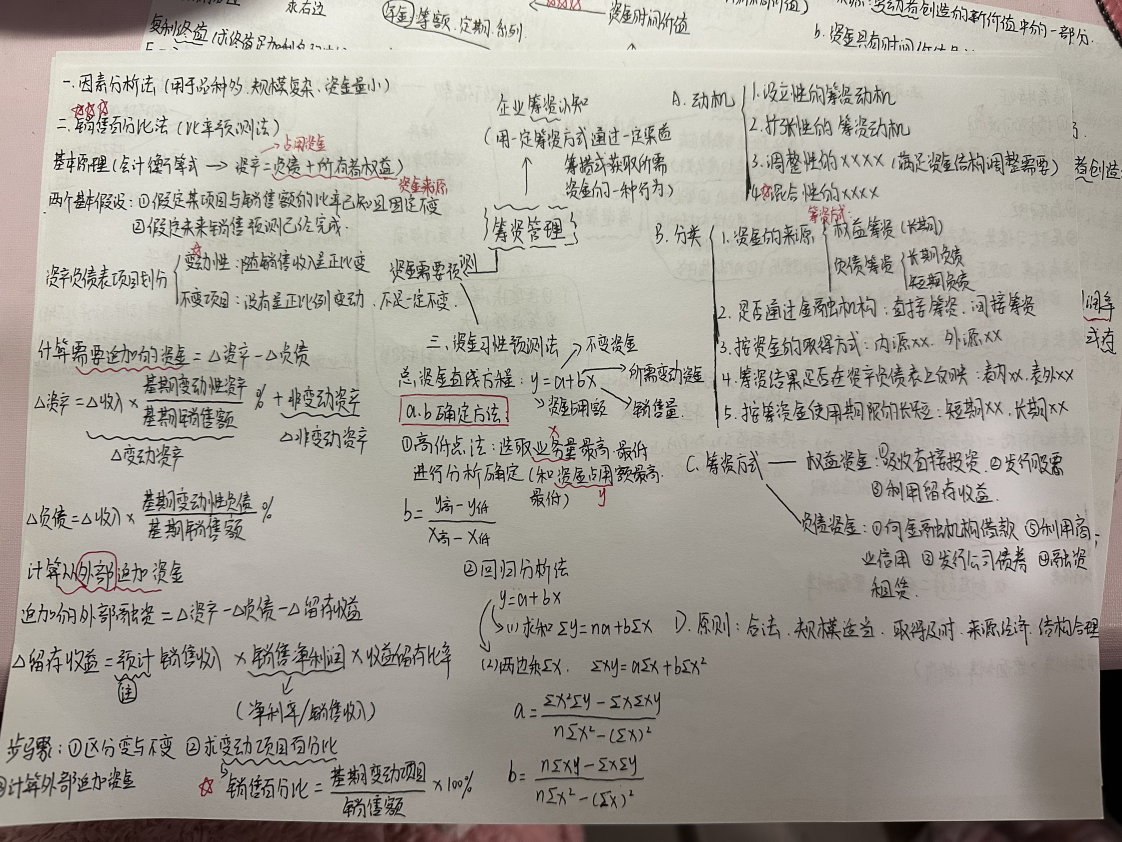 求右边
年金：等额、定期、系列
资金时间价值
复利终值
劳动者创造的新价值中的一部分.
b. 资金具有时间价值
一. 因素分析法 (用于品种多、规模复杂、资金量小)
二. 销售百分比法 (比率预测法)
占用资金
基本原理 (会计恒等式 → 资产=负债+所有者权益)
资金来源
两个基本假设: ①假定某项目与销售额的比率已知且固定不变
②假定未来销售预测已经完成.
资产负债表项目划分
变动性: 随销售收入呈正比变
不变项目: 没有呈正比例变动、不是一定不变.
计算需要追加的资金 = △资产 - △负债
△资产 = △收入 × 基期变动性资产/基期销售额 % + 非变动资产
△变动资产
△非变动资产
△负债 = △收入 × 基期变动性负债/基期销售额 %
计算从外部追加资金
追加的外部融资 = △资产 - △负债 - △留存收益
△留存收益 = 预计销售收入 × 销售净利润 × 收益留存比率
注
(净利率/销售收入)
步骤: ①区分变与不变 ②求变动项目百分比
③计算外部追加资金
销售百分比 = 基期变动项目/销售额 × 100%
企业筹资认知
(用一定筹资方式通过一定渠道
筹措或获取所需
资金的一种行为)
筹资管理
资金需要预测
三. 资金习性预测法
不变资金
总资金直线方程: y = a + bx
所需变动资金
资金占用额
销售量.
a.b确定方法:
x
①高低点法: 选取业务量最高、最低
进行分析确定 (和资金占用额最高.
最低)
y
b = y高 - y低/x高 - x低
②回归分析法
y = a + bx
(1) 求和 Σy = na + bΣx
(2) 两边乘Σx. Σxy = aΣx + bΣx²
a = Σx²Σy - ΣxΣxy/nΣx² - (Σx)²
b = nΣxy - ΣxΣy/nΣx² - (Σx)²
A. 动机
1. 设立性的筹资动机
2. 扩张性的筹资动机
3. 调整性的xxxx (满足资金结构调整需要)
4. 混合性的xxxx
B. 分类
筹资方式
1. 资金的来源
权益筹资 (长期)
负债筹资
长期负债
短期负债
2. 是否通过金融机构: 直接筹资、间接筹资
3. 按资金的取得方式: 内源xx. 外源xx
4. 筹资结果是否在资产负债表上反映: 表内xx. 表外xx
5. 按筹资金使用期限的长短: 短期xx. 长期xx
C. 筹资方式 — 权益资金: ①吸收直接投资. ②发行股票
③利用留存收益.
负债资金: ①向金融机构借款 ⑤利用商
业信用 ③发行公司债券 ④融资
租赁.
D. 原则: 合法、规模适当、取得及时、来源经济、结构合理
者创造